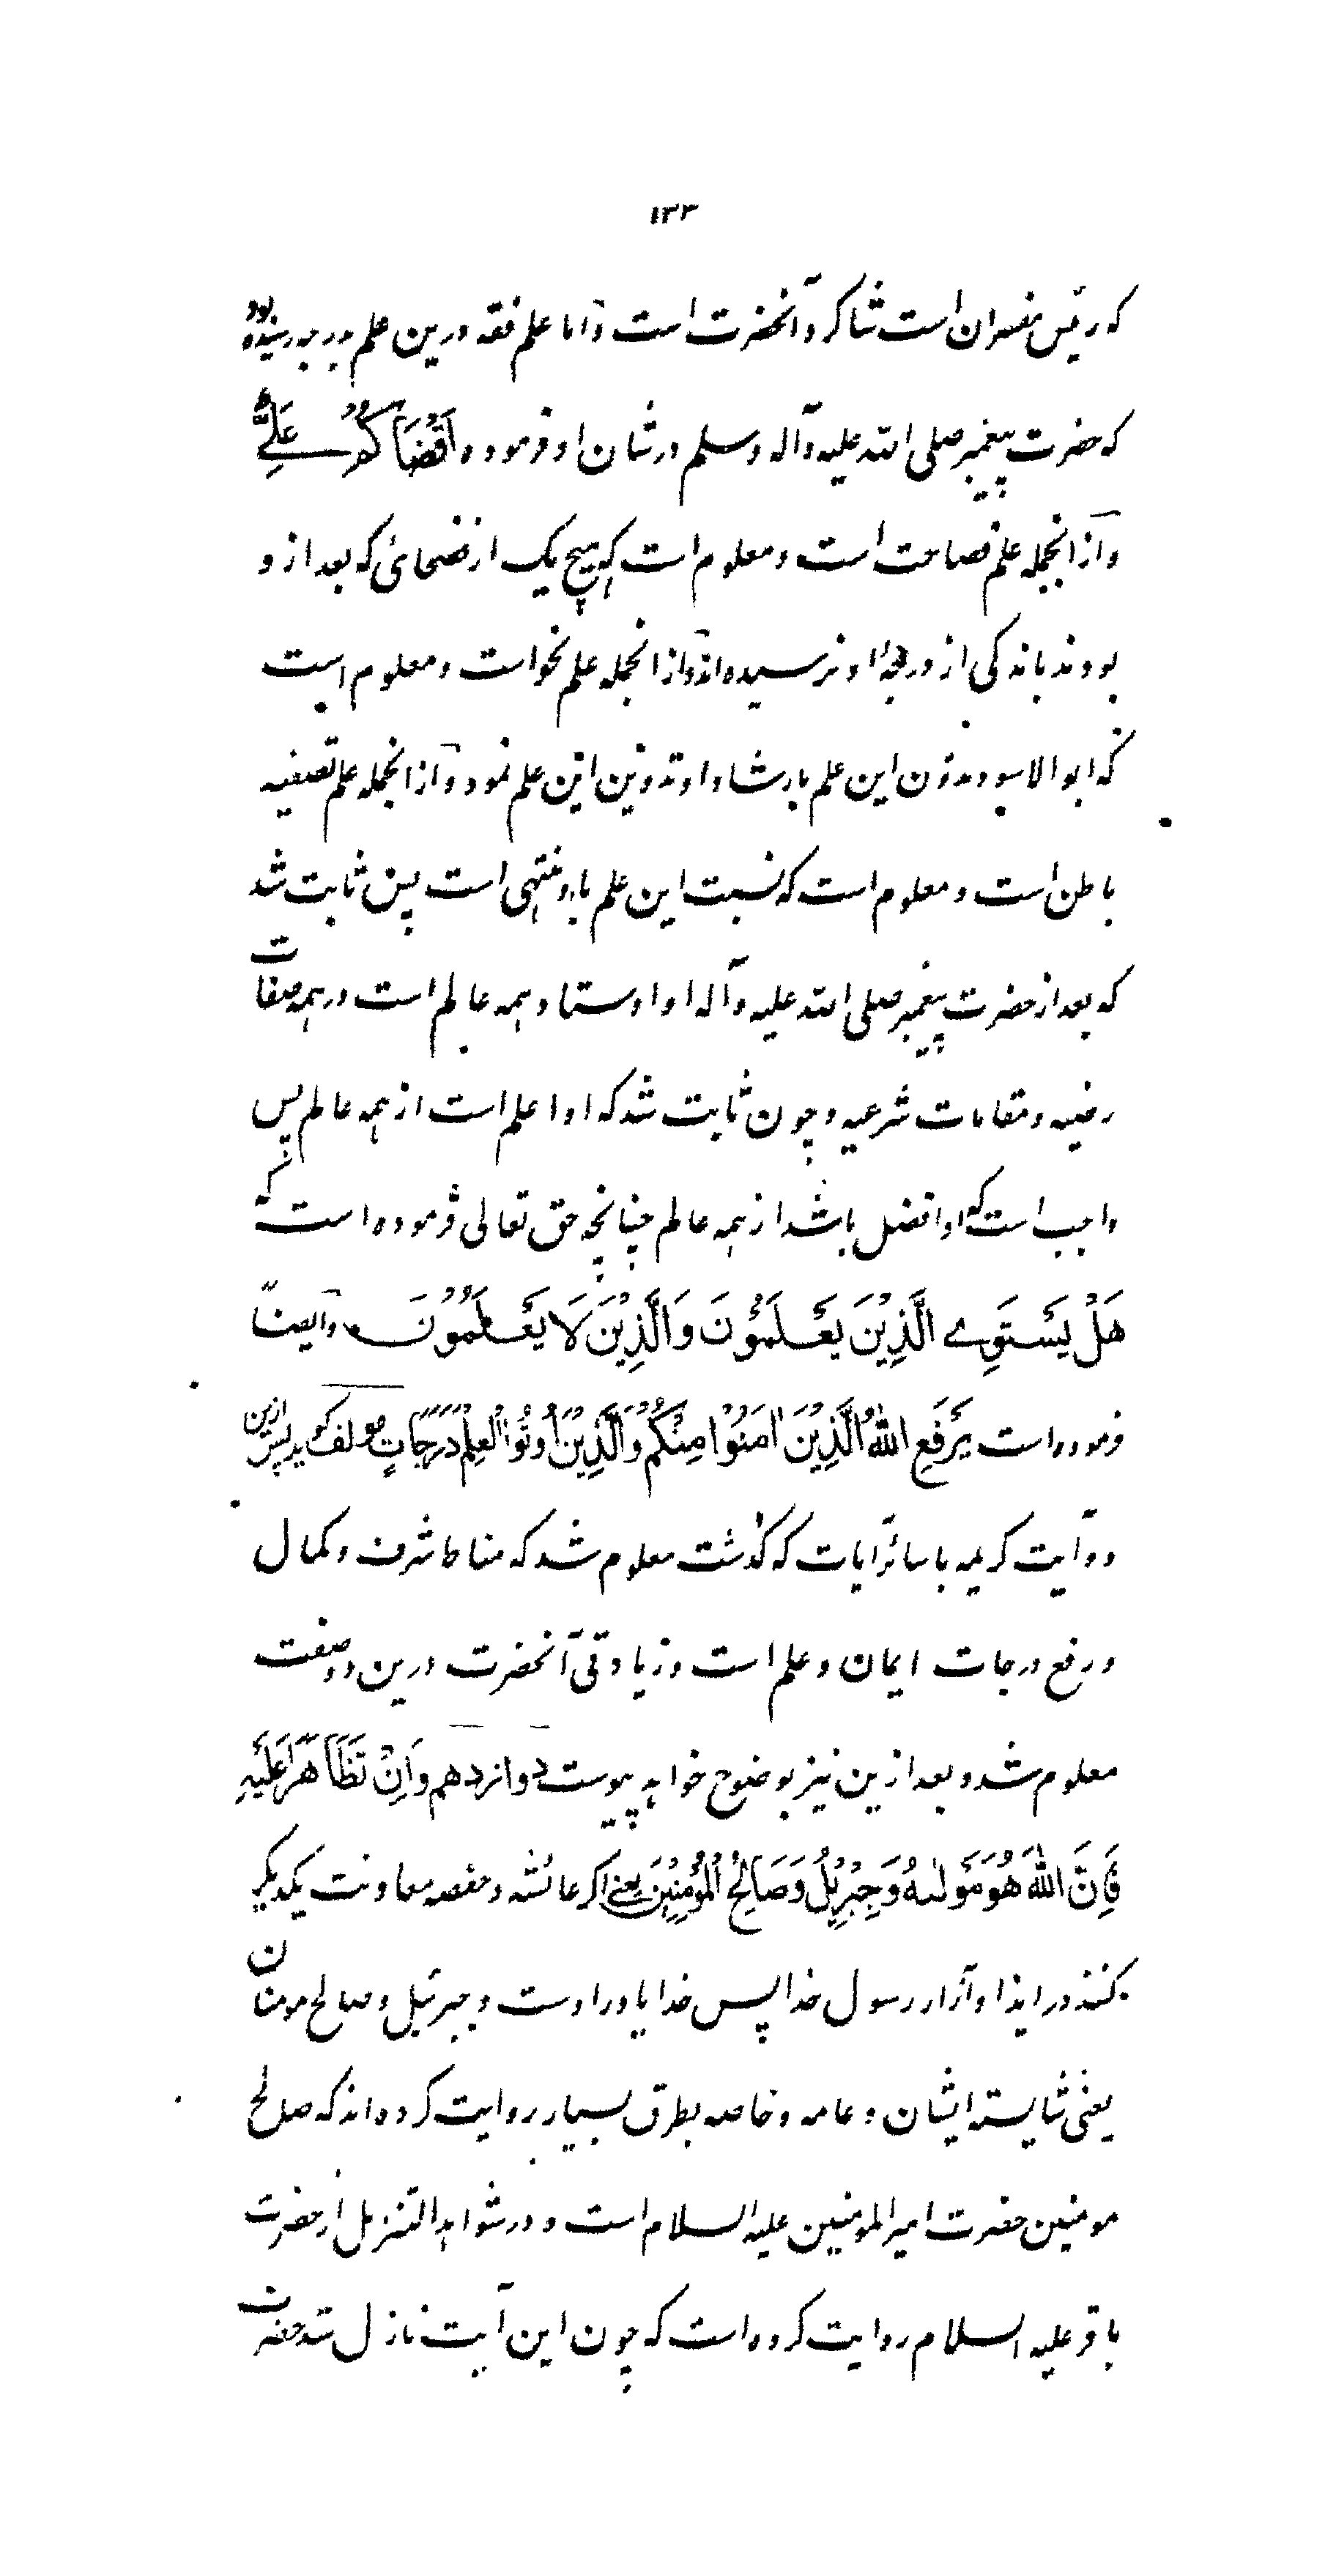 ۱۳۳
که رئیس مفسران است شاکرد آنحضرت است و اما علم فقه درین علم بدرجه رسیده بود
که حضرت پیغمبر صلی الله علیه وآله وسلم در شان او فرموده اَقْضَاكُمْ عَلِيٌّ
وازانجمله علم فصاحت است و معلوم است که هیچ یک از فصحائی که بعد از و
بودند باندکی از درجۀ او نرسیده اند وازانجمله علم نحو است و معلوم است
که ابو الاسود مدون این علم بارشاد او تدوین این علم نمود وازانجمله علم تصفیه
باطن است و معلوم است که نسبت این علم باو منتهی است پس ثابت شد
که بعد از حضرت پیغمبر صلی الله علیه وآله او اوستاد همه عالم است در همه صفات
رضیه و مقامات شرعیه و چون ثابت شد که او اعلم است از همه عالم پس
واجب است که او افضل باشد از همه عالم چنانچه حق تعالی فرموده است که
هَلْ يَسْتَوِي الَّذِيْنَ يَعْلَمُوْنَ وَالَّذِيْنَ لَا يَعْلَمُوْنَ وایضاً
فرموده است يَرْفَعِ اللّٰهُ الَّذِيْنَ اٰمَنُوْا مِنْكُمْ وَالَّذِيْنَ اُوتُوا الْعِلْمَ دَرَجَاتٍ مولف کوید پس ازین
دو آیت کریمه با سائر آیات که کذشت معلوم شد که مناط شرف و کمال
و رفع درجات ایمان و علم است و زیادتی آنحضرت درین دو صفت
معلوم شد و بعد ازین نیز بوضوح خواهد پیوست دوازدهم وَاِنْ تَظَاهَرَا عَلَيْهِ
فَاِنَّ اللّٰهَ هُوَ مَوْلٰىهُ وَجِبْرِيْلُ وَصَالِحُ الْمُؤْمِنِيْنَ یعنی اکر عائشه و حفصه معاونت یکدیکر
بکنند در ایذا و آزار رسول خدا پس خدا یاور اوست و جبرئیل و صالح مومنان
یعنی شایسته ایشان و عامه و خاصه بطرق بسیار روایت کرده اند که صالح
مومنین حضرت امیر المومنین علیه السلام است و در شواهد التنزیل از حضرت
باقر علیه السلام روایت کرده است که چون این آیت نازل شد حضرت